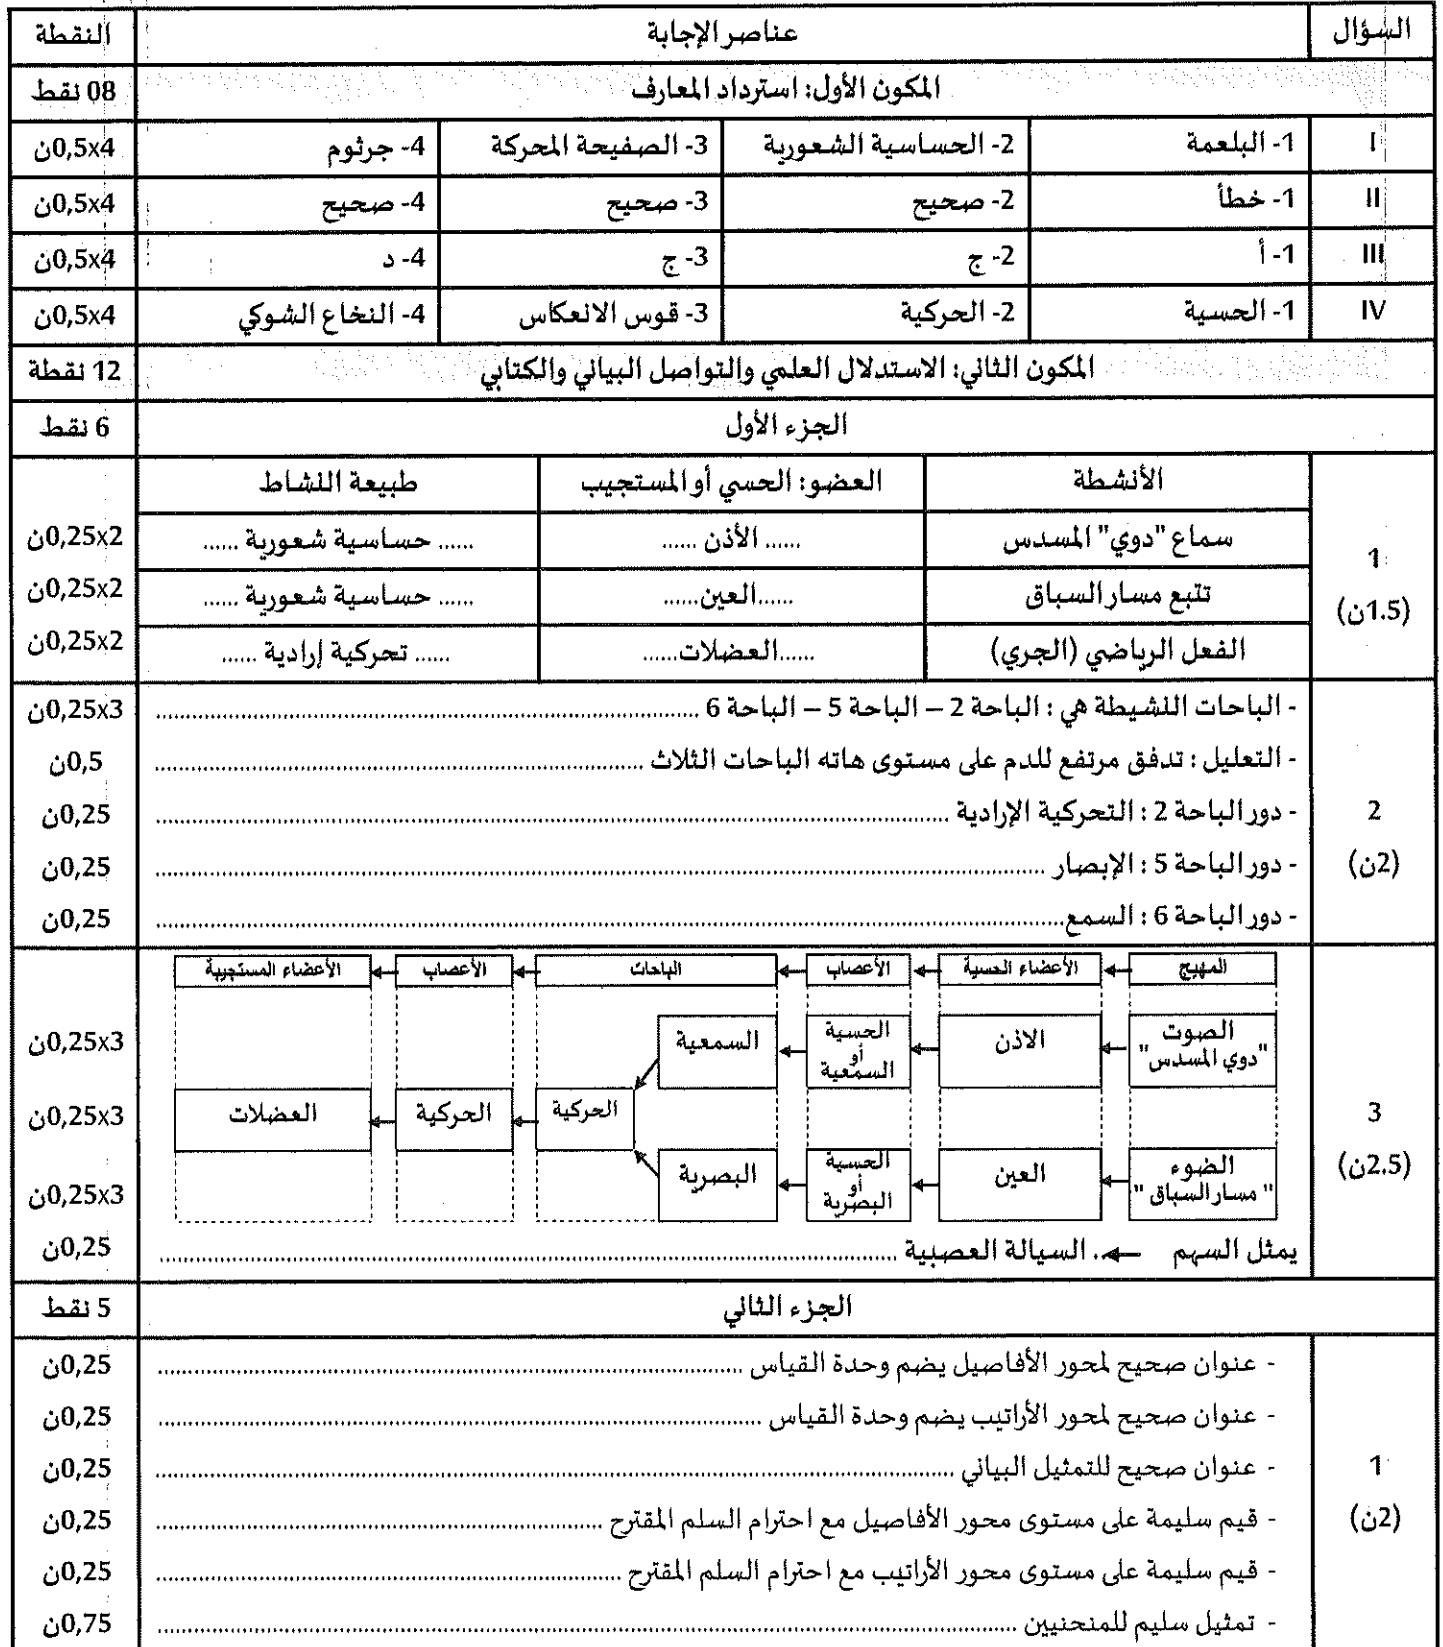 السؤال عناصر الإجابة النقطة
المكون الأول: استرداد المعارف 08 نقط
I 1- البلعمة 2- الحساسية الشعورية 3- الصفيحة المحركة 4- جرثوم 0,5x4ن
II 1- خطأ 2- صحيح 3- صحيح 4- صحيح 0,5x4ن
III 1- أ 2- ج 3- ج 4- د 0,5x4ن
IV 1- الحسية 2- الحركية 3- قوس الانعكاس 4- النخاع الشوكي 0,5x4ن
المكون الثاني: الاستدلال العلمي والتواصل البياني والكتابي 12 نقطة
الجزء الأول 6 نقط
الأنشطة العضو: الحسي أو المستجيب طبيعة النشاط
سماع "دوي" المسدس ...... الأذن ...... ...... حساسية شعورية ...... 0,25x2ن
1
تتبع مسار السباق ......العين...... ...... حساسية شعورية ...... 0,25x2ن
(1.5ن)
الفعل الرياضي (الجري) ......العضلات...... ...... تحركية إرادية ...... 0,25x2ن
- الباحات النشيطة هي : الباحة 2 – الباحة 5 – الباحة 6 ...... 0,25x3ن
- التعليل : تدفق مرتفع للدم على مستوى هاته الباحات الثلاث ...... 0,5ن
2 - دور الباحة 2 : التحركية الإرادية ...... 0,25ن
(2ن) - دور الباحة 5 : الإبصار ...... 0,25ن
- دور الباحة 6 : السمع...... 0,25ن
المهيج الأعضاء الحسية الأعصاب الباحات الأعصاب الأعضاء المستجيبة
الصوت "دوي المسدس" الاذن الحسية أو السمعية السمعية 0,25x3ن
3 الحركية الحركية العضلات 0,25x3ن
(2.5ن) الضوء " مسار السباق " العين الحسية أو البصرية البصرية 0,25x3ن
يمثل السهم ←. السيالة العصبية ...... 0,25ن
الجزء الثاني 5 نقط
- عنوان صحيح لمحور الأفاصيل يضم وحدة القياس ...... 0,25ن
- عنوان صحيح لمحور الأراتيب يضم وحدة القياس ...... 0,25ن
1 - عنوان صحيح للتمثيل البياني ...... 0,25ن
(2ن) - قيم سليمة على مستوى محور الأفاصيل مع احترام السلم المقترح ...... 0,25ن
- قيم سليمة على مستوى محور الأراتيب مع احترام السلم المقترح ...... 0,25ن
- تمثيل سليم للمنحنيين ...... 0,75ن